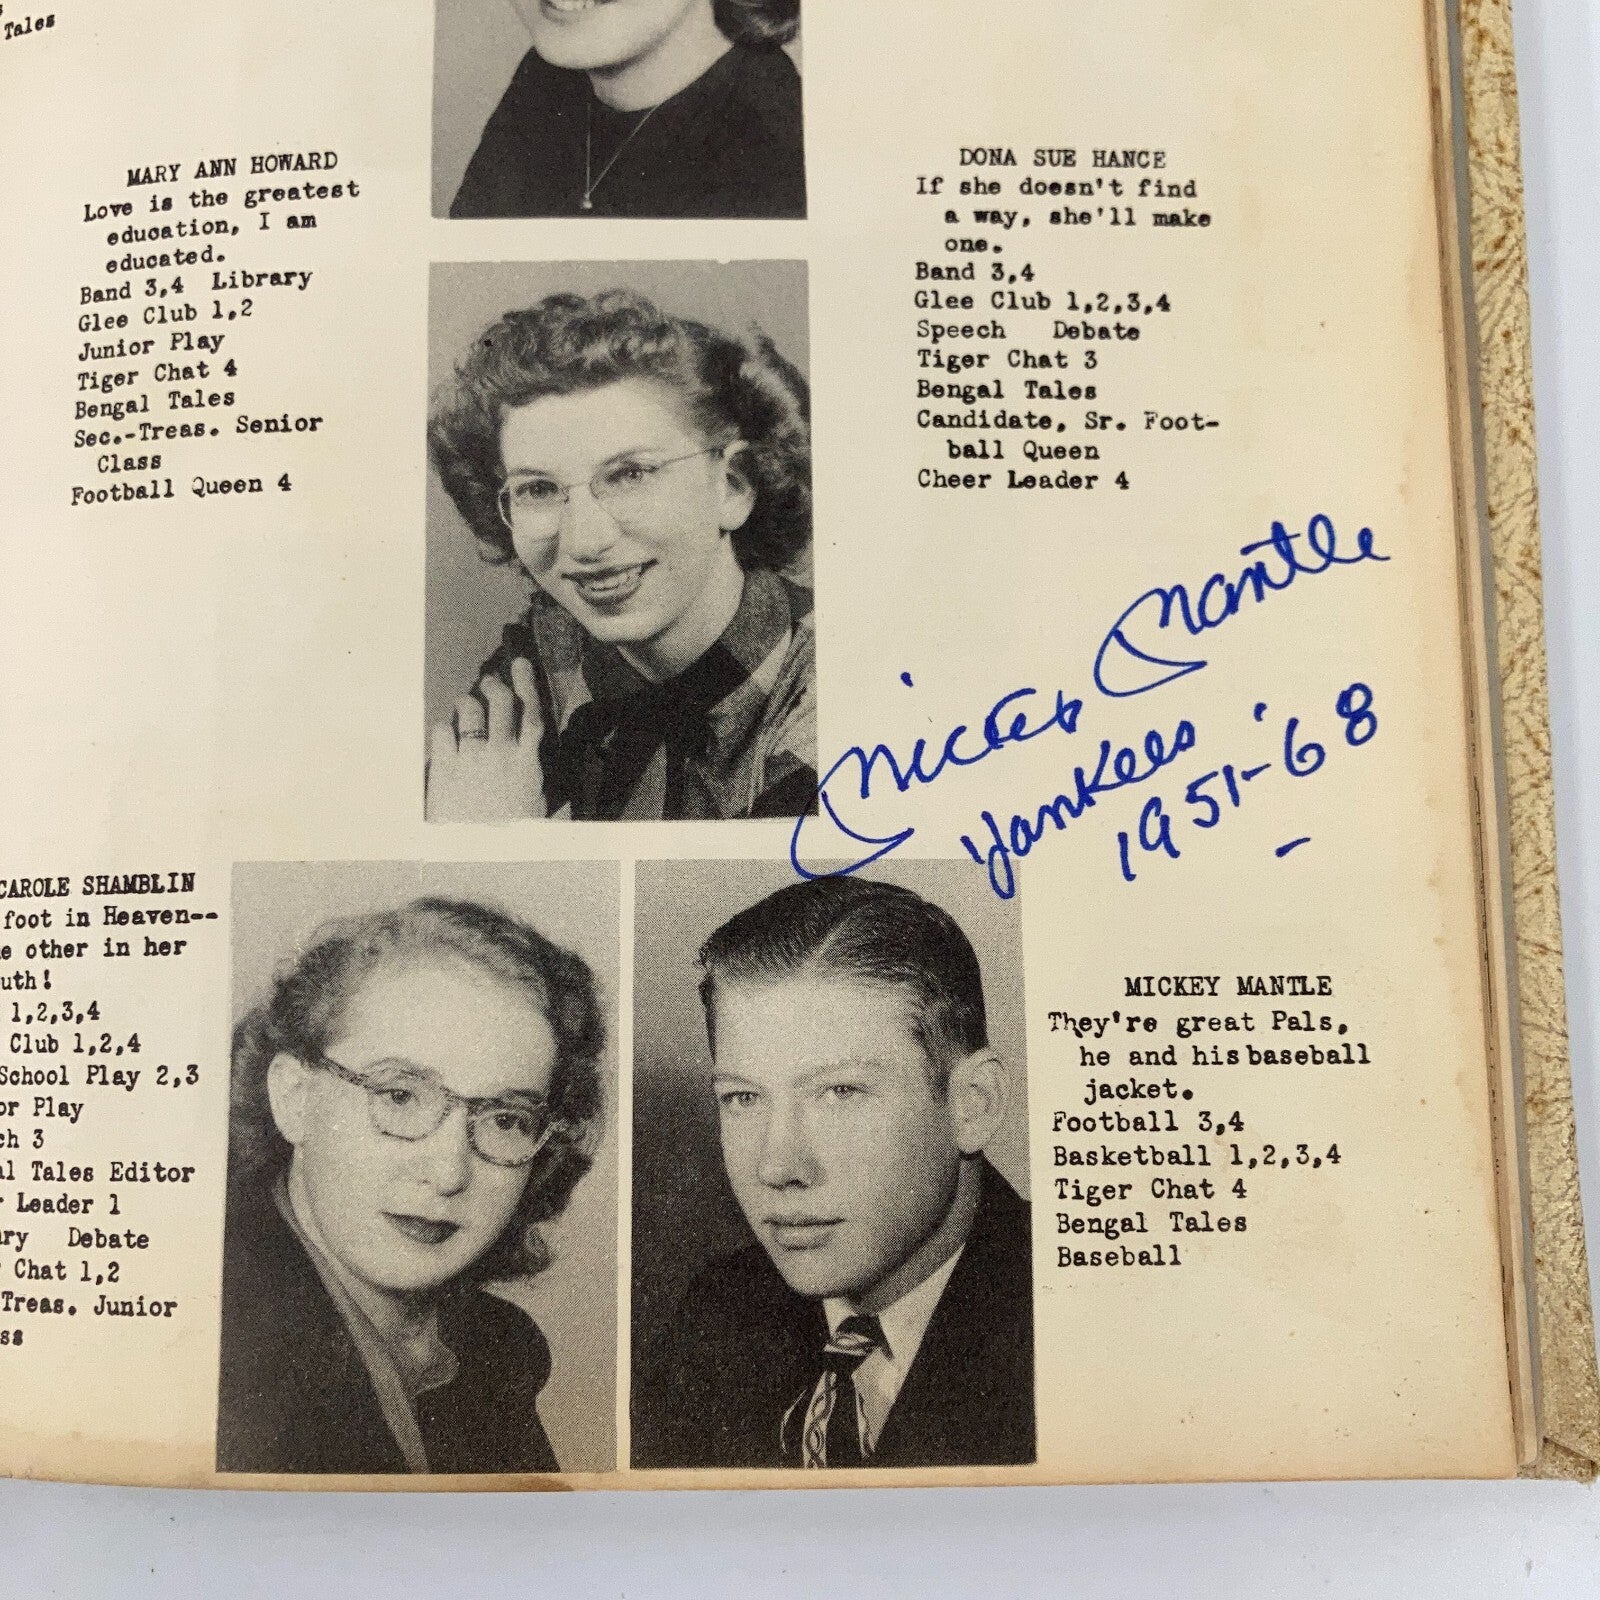 Tales
MARY ANN HOWARD
Love is the greatest
education, I am
educated.
Band 3,4 Library
Glee Club 1,2
Junior Play
Tiger Chat 4
Bengal Tales
Sec.-Treas. Senior
Class
Football Queen 4
DONA SUE HANCE
If she doesn't find
a way, she'll make
one.
Band 3,4
Glee Club 1,2,3,4
Speech Debate
Tiger Chat 3
Bengal Tales
Candidate, Sr. Foot-
ball Queen
Cheer Leader 4
Mickey Mantle
Yankees
1951-'68
CAROLE SHAMBLIN
foot in Heaven--
other in her
1,2,3,4
Club 1,2,4
School Play 2,3
Play
3
Tales Editor
Leader 1
Debate
Chat 1,2
Treas. Junior
MICKEY MANTLE
They're great Pals,
he and his baseball
jacket.
Football 3,4
Basketball 1,2,3,4
Tiger Chat 4
Bengal Tales
Baseball